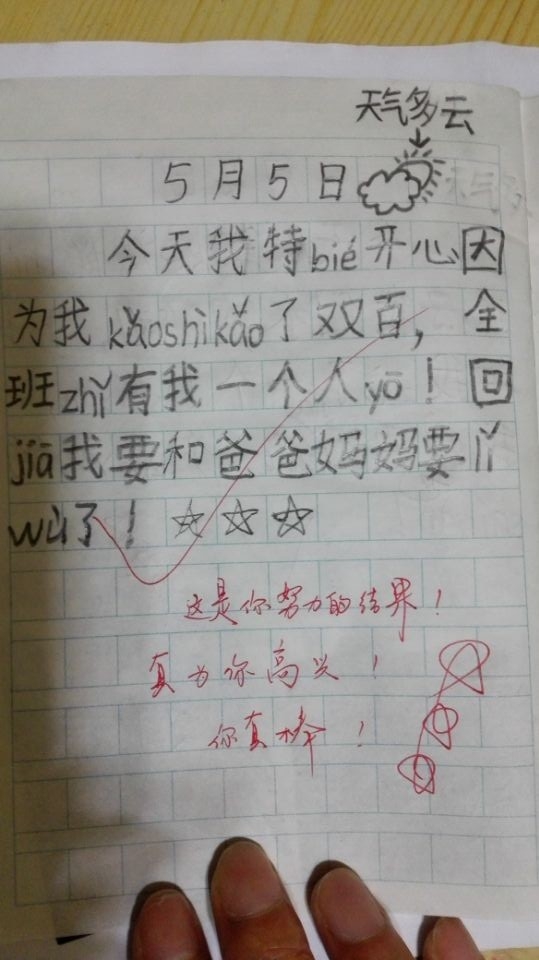 天气多云
5月5日
今天我特bié开心因
为我kǎoshìkǎo了双百，全
班zhǐ有我一个人yō！回
jiā我要和爸爸妈妈要lǐ
wù了！☆☆☆
这是你努力的结果！
真为你高兴！
你真棒！